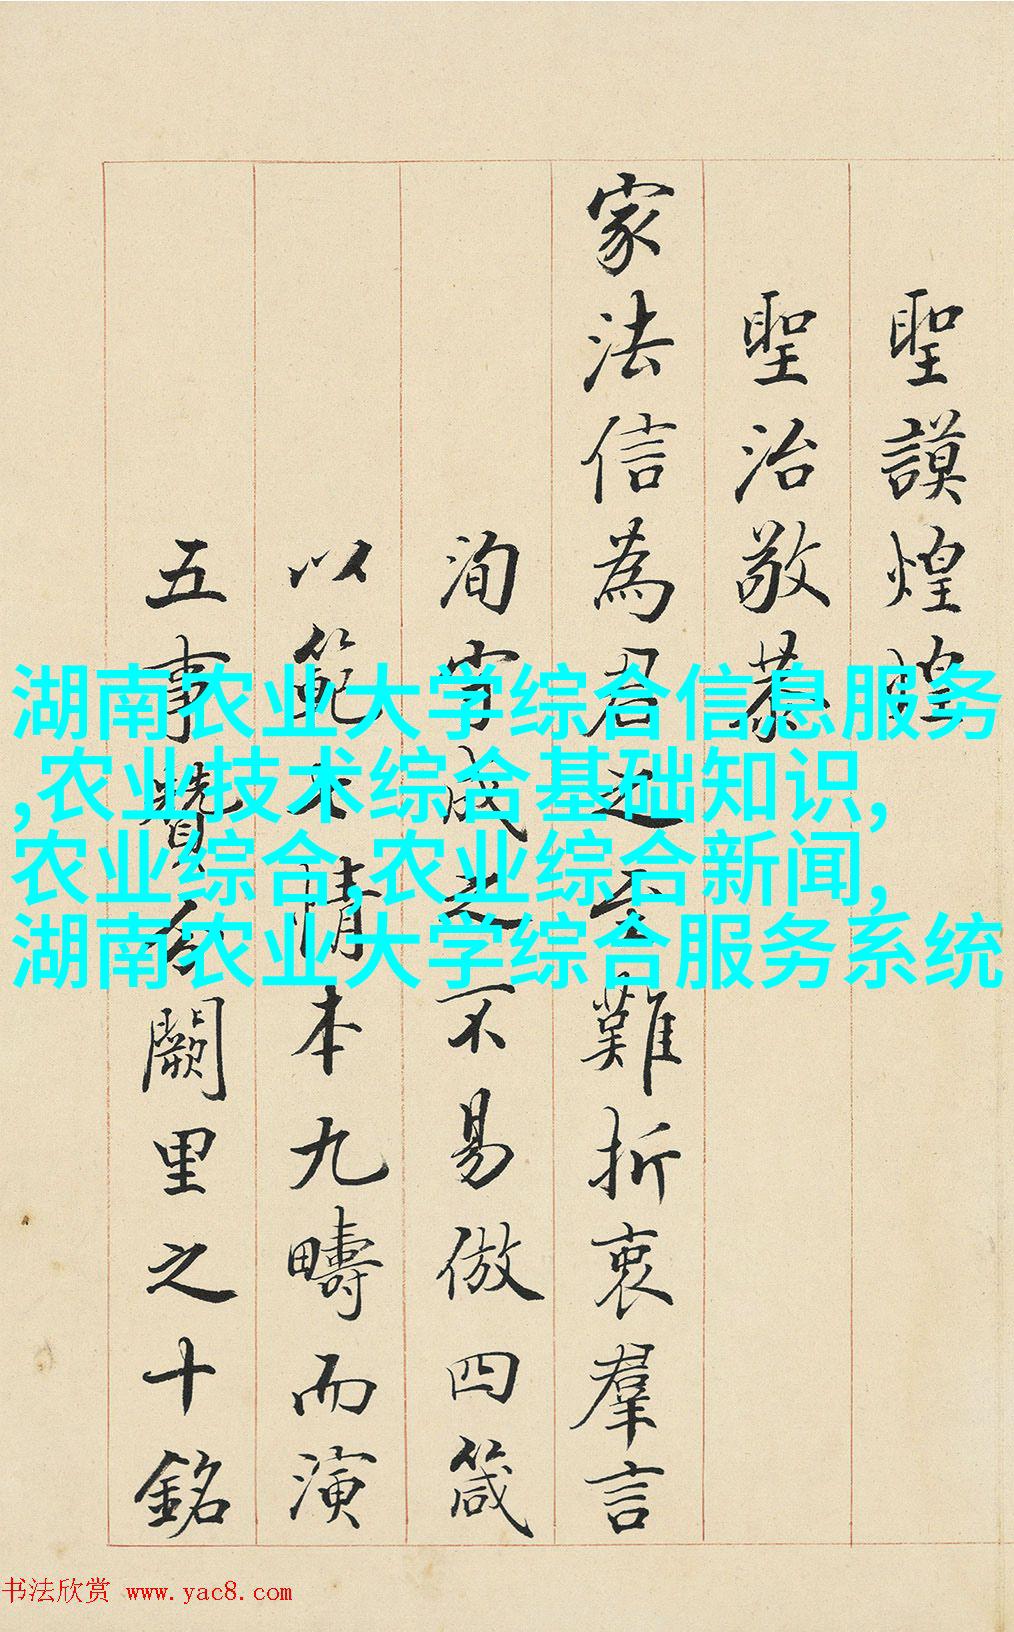 聖謨煌煌
聖治敬恭
家法信為君至難折衷羣言
洵守成之不易倣四箴
以範六情本九疇而演
五事闕里之十銘
湖南农业大学综合信息服务
,农业技术综合基础知识,
农业综合,农业综合新闻,
湖南农业大学综合服务系统
书法欣赏 www.yac8.com